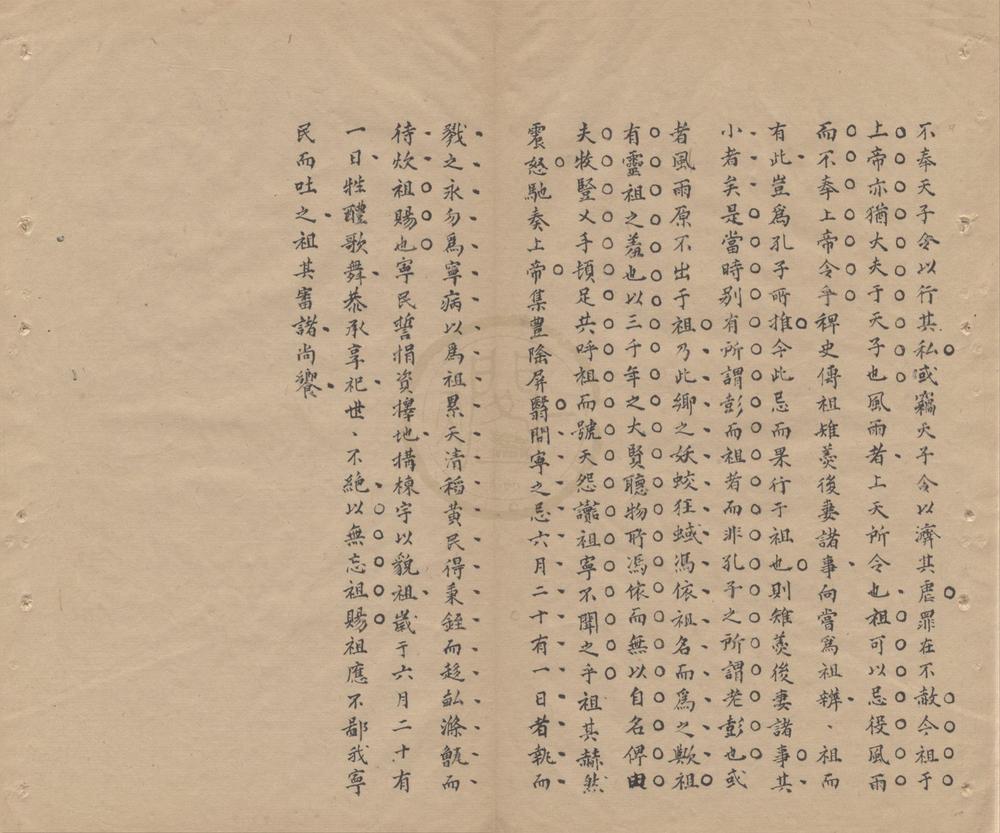 不奉天子令以行其私或竊天子令以濟其虐罪在不赦今祖于
上帝亦猶大夫于天子也風雨者上天所令也祖可以忌役風雨
而不奉上帝令乎稗史傳祖雉羹後妻諸事向嘗爲祖辨、祖而
有此豈爲孔子所推今此忌而果行于祖也則雉羹後妻諸事其
小者矣是當時别有所謂彭而祖者而非孔子之所謂老彭也或
者風雨原不出于祖乃此鄉之妖蛟狂蜮馮依祖名而爲之歟祖
有靈祖之羞也以三千年之大賢聽物所馮依而無以自名俾田
夫牧豎乂手頓足共呼祖而號天怨讟祖寧不聞之乎祖其赫然
震怒馳奏上帝集豐隆屏翳問寧之忌六月二十有一日者執而
戮之永勿爲寧病以爲祖累天清稻黄民得秉銍而趍畆滌甑而
待炊祖賜也寧民誓捐資擇地搆棟宇以貌祖歲于六月二十有
一日牲醴歌舞恭承享祀世、不絶以無忘祖賜祖應不鄙我寧
民而吐之祖其審諸尚饗